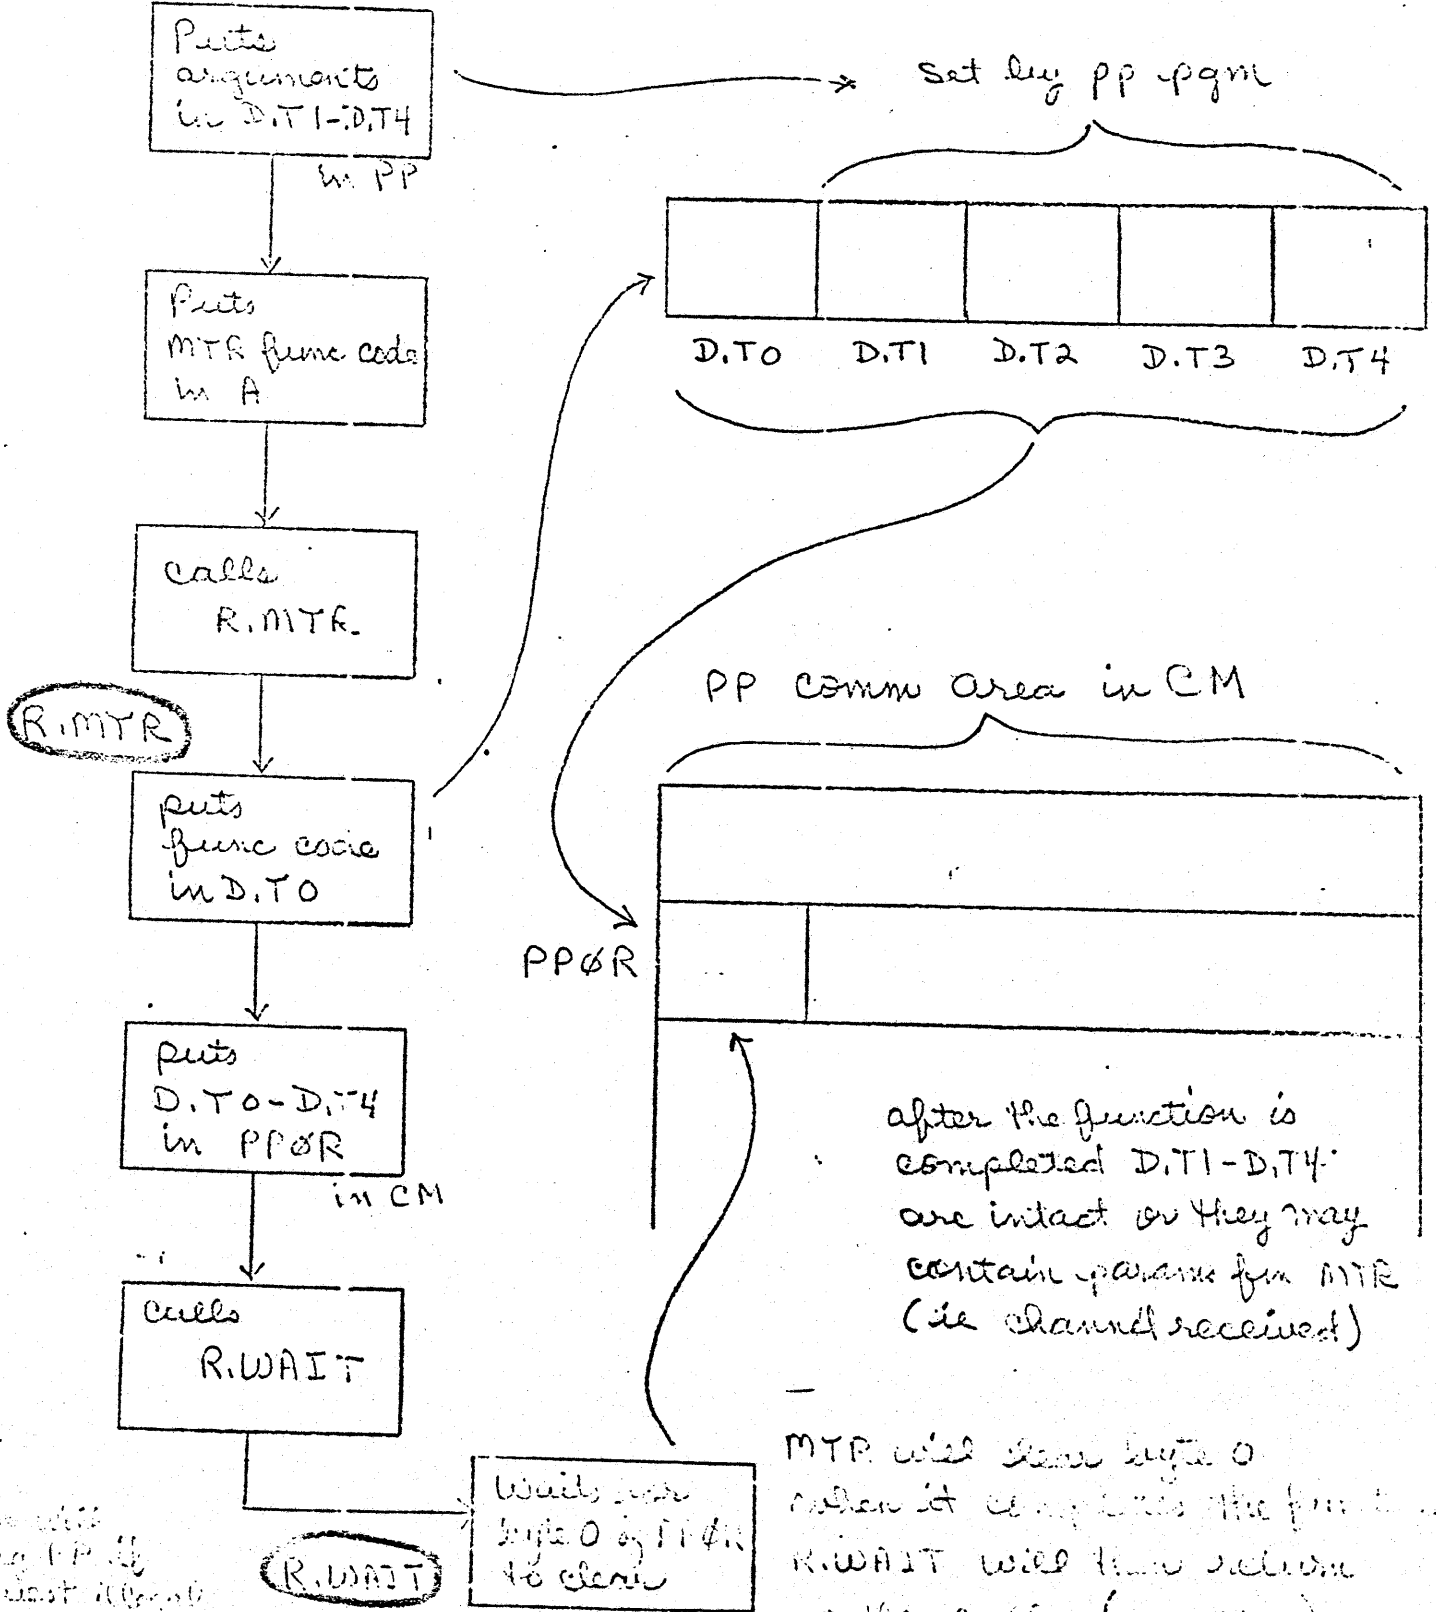 Puts
arguments
in D.T1-D.T4
in PP
Puts
MTR func code
in A
calls
R.MTR
R.MTR
puts
func code
in D.T0
puts
D.T0-D.T4
in PPØR
in CM
calls
R.WAIT
R.WAIT
Waits for
byte 0 of PPØR
to clear
set by pp pgm
D.T0 D.T1 D.T2 D.T3 D.T4
PP comm area in CM
PPØR
after the function is
completed D.T1-D.T4
are intact or they may
contain params fm MTR
(ie channel received)
MTR will clear byte 0
when it completes the
R.WAIT will then return
PP if
illegal